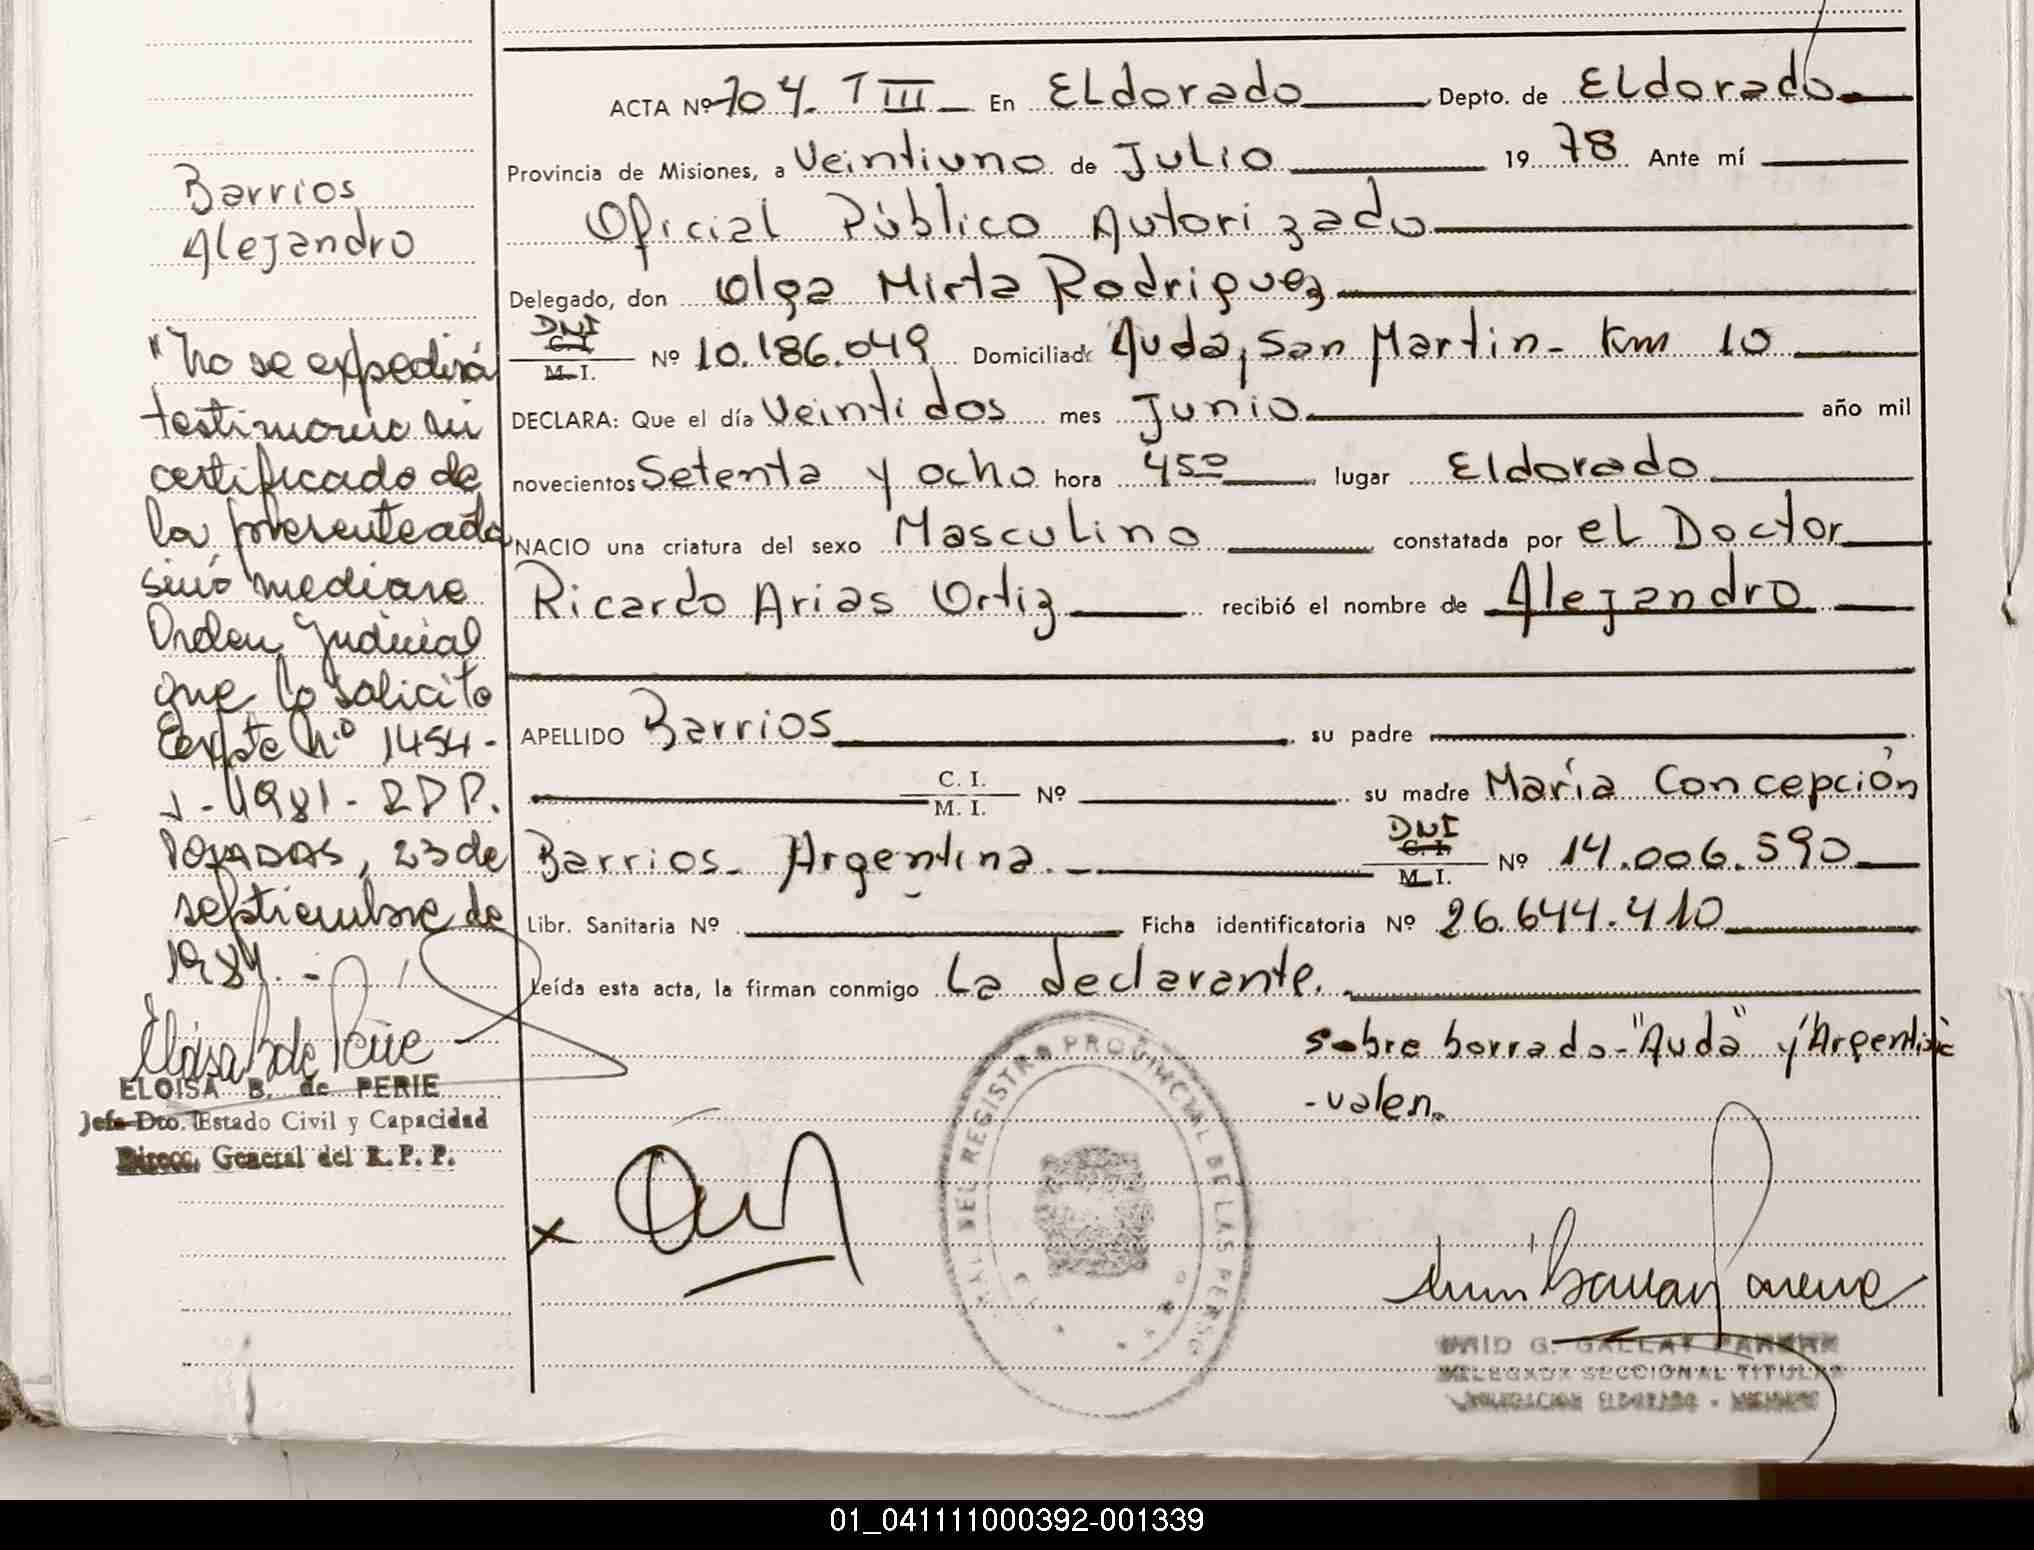 ACTA Nº 704. T III En ELdorado Depto. de ELdorado
Provincia de Misiones, a Veintiuno de Julio 19 78 Ante mí
Oficial Público Autorizado
Delegado, don Olga Mirta Rodriguez
DNI C. I. M. I. Nº 10.186.049 Domiciliado Avda, San Martin - Km 10
DECLARA: Que el día Veintidos mes Junio año mil
novecientos Setenta y ocho hora 450 lugar Eldorado
NACIO una criatura del sexo Masculino constatada por eL Doctor
Ricardo Arias Ortiz recibió el nombre de Alejandro
APELLIDO Barrios su padre
C. I. M. I. Nº su madre María Concepción
Barrios - Argentina. - DNI C. I. M. I. Nº 14.006.590
Libr. Sanitaria Nº Ficha identificatoria Nº 26.644.410
Leída esta acta, la firman conmigo La declarante.
Sobre borrado - "Avda" y "Argentina"
- valen.
Barrios
Alejandro
"No se expedirá
testimonio ni
certificado de
la presente acta
sinó mediare
Orden Judicial
que lo solicite
Expte Nº 1454 -
- 1981 - RPP.
Posadas, 23 de
septiembre de
1981. -
ELOISA B. de PERIE
Jefe Dto. Estado Civil y Capacidad
Direcc. General del R. P. P.
DEL REGISTRO PROVINCIAL DE LAS PERSO
G. GALLAY
DELEGADA SECCIONAL TITULAR
DELEGACION ELDORADO - MISIONES
01_041111000392-001339